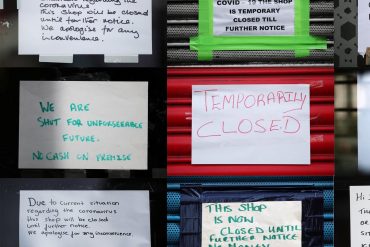 regarding the
coronavirus
this shop will be closed
until further notice.
We apologise for any
inconvenience.
COVID - 19 THE SHOP
IS TEMPORARY
CLOSED TILL
FURTHER NOTICE
WE ARE
SHUT FOR UNFORSEEABLE
FUTURE.
NO CASH ON PREMISE
TEMPORARILY
CLOSED
Due to current situation
regarding the coronavirus
this shop will be closed
until further notice.
We apologise for any inconvenience.
THIS SHOP
IS NOW
CLOSED UNTIL
FURTHER NOTICE
NO MONEY